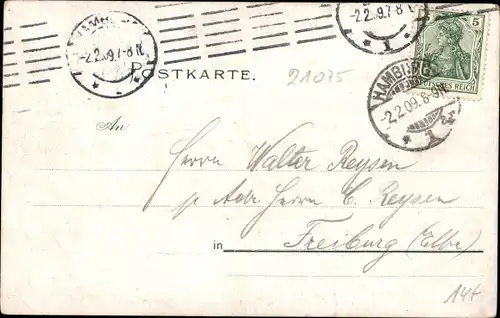 HAMBURG
-2.2.09.7-8N.
-2.2.09.7-8N.
* 1 *
5
DEUTSCHES REICH
POSTKARTE.
21075
HAMBURG
-2.2.09.8-9N.
* 1
An
Herrn Walter Reysen
p. Adr. Herrn C. Reysen
in Freiburg (Elbe)